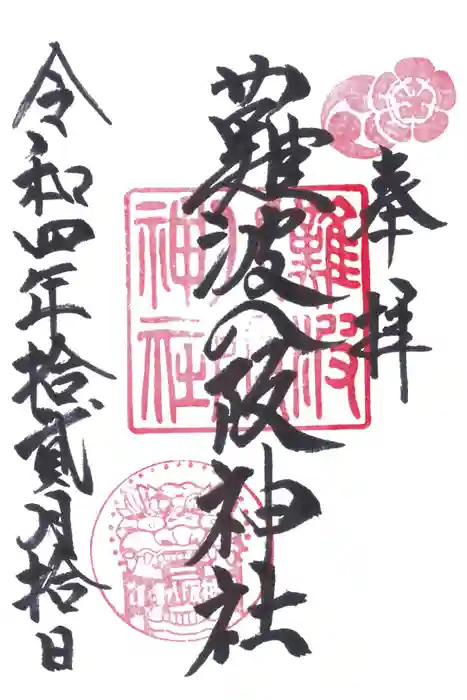 奉拝
難波八阪神社
令和四年拾貳月拾日
難波
神社